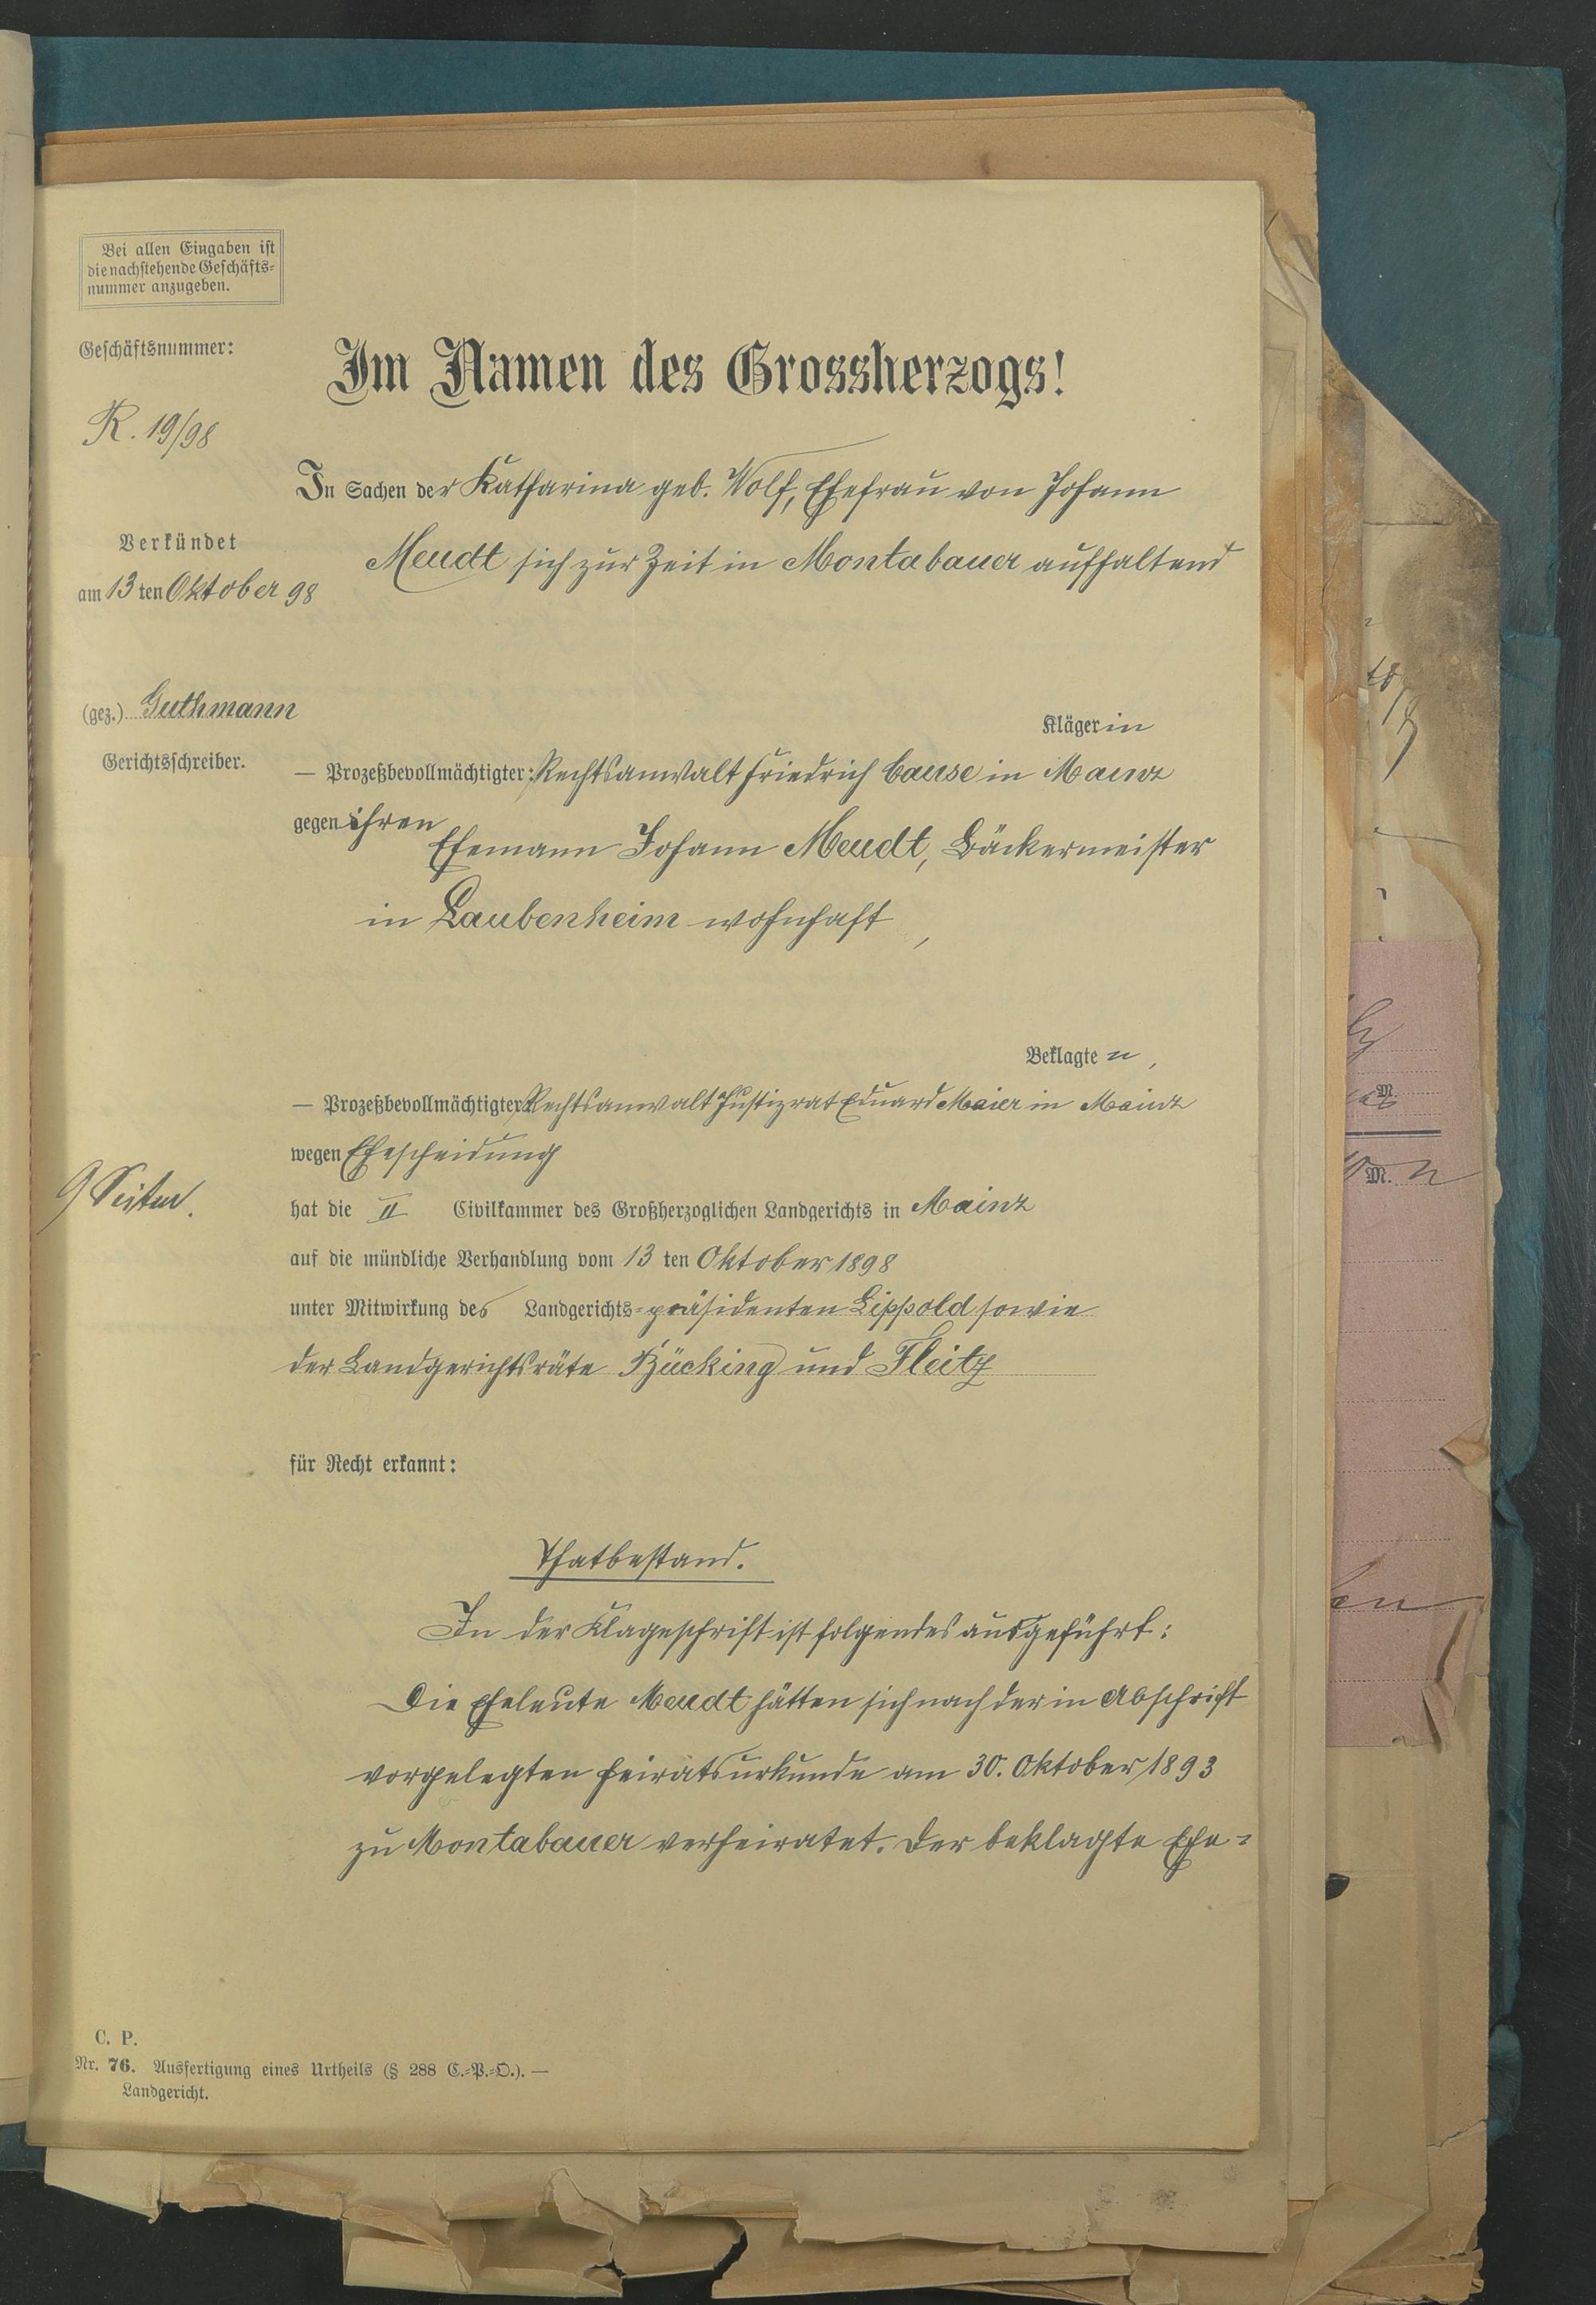 Bei allen Eingaben ist
die nachstehende Geschäfts-
nummer anzugeben.
Geschäftsnummer:
R. 19/98
Im Namen des Grossherzogs!
In Sachen der Katharina geb. Wolf, Ehefrau von Johann
Meudt sich zur Zeit in Montabauer aufhaltend
Verkündet
am 13 ten Oktober 98
(gez.) Guthmann
Gerichtsschreiber.
Klägerin
— Prozeßbevollmächtigter: Rechtsanwalt Friedrich Cause in Mainz
gegen ihren
Ehemann Johann Meudt, Bäckermeister
in Laubenheim wohnhaft,
Beklagten,
— Prozeßbevollmächtigter: Rechtsanwalt Justizrat Eduard Maier in Mainz
wegen Ehescheidung
9 Seiten.
hat die II Civilkammer des Großherzoglichen Landgerichts in Mainz
auf die mündliche Verhandlung vom 13 ten Oktober 1898
unter Mitwirkung des Landgerichts-präsidenten Lippold sowie
der Landgerichtsräte Bücking und Fleitz
für Recht erkannt:
Thatbestand.
In der Klageschrift ist folgendes ausgeführt:
Die Eheleute Meudt hätten sich nach der in Abschrift
vorgelegten Heiratsurkunde am 30. Oktober 1893
zu Montabauer verheiratet. Der beklagte Ehe-
C. P.
Nr. 76. Ausfertigung eines Urtheils (§ 288 C.-P.-O.). —
Landgericht.